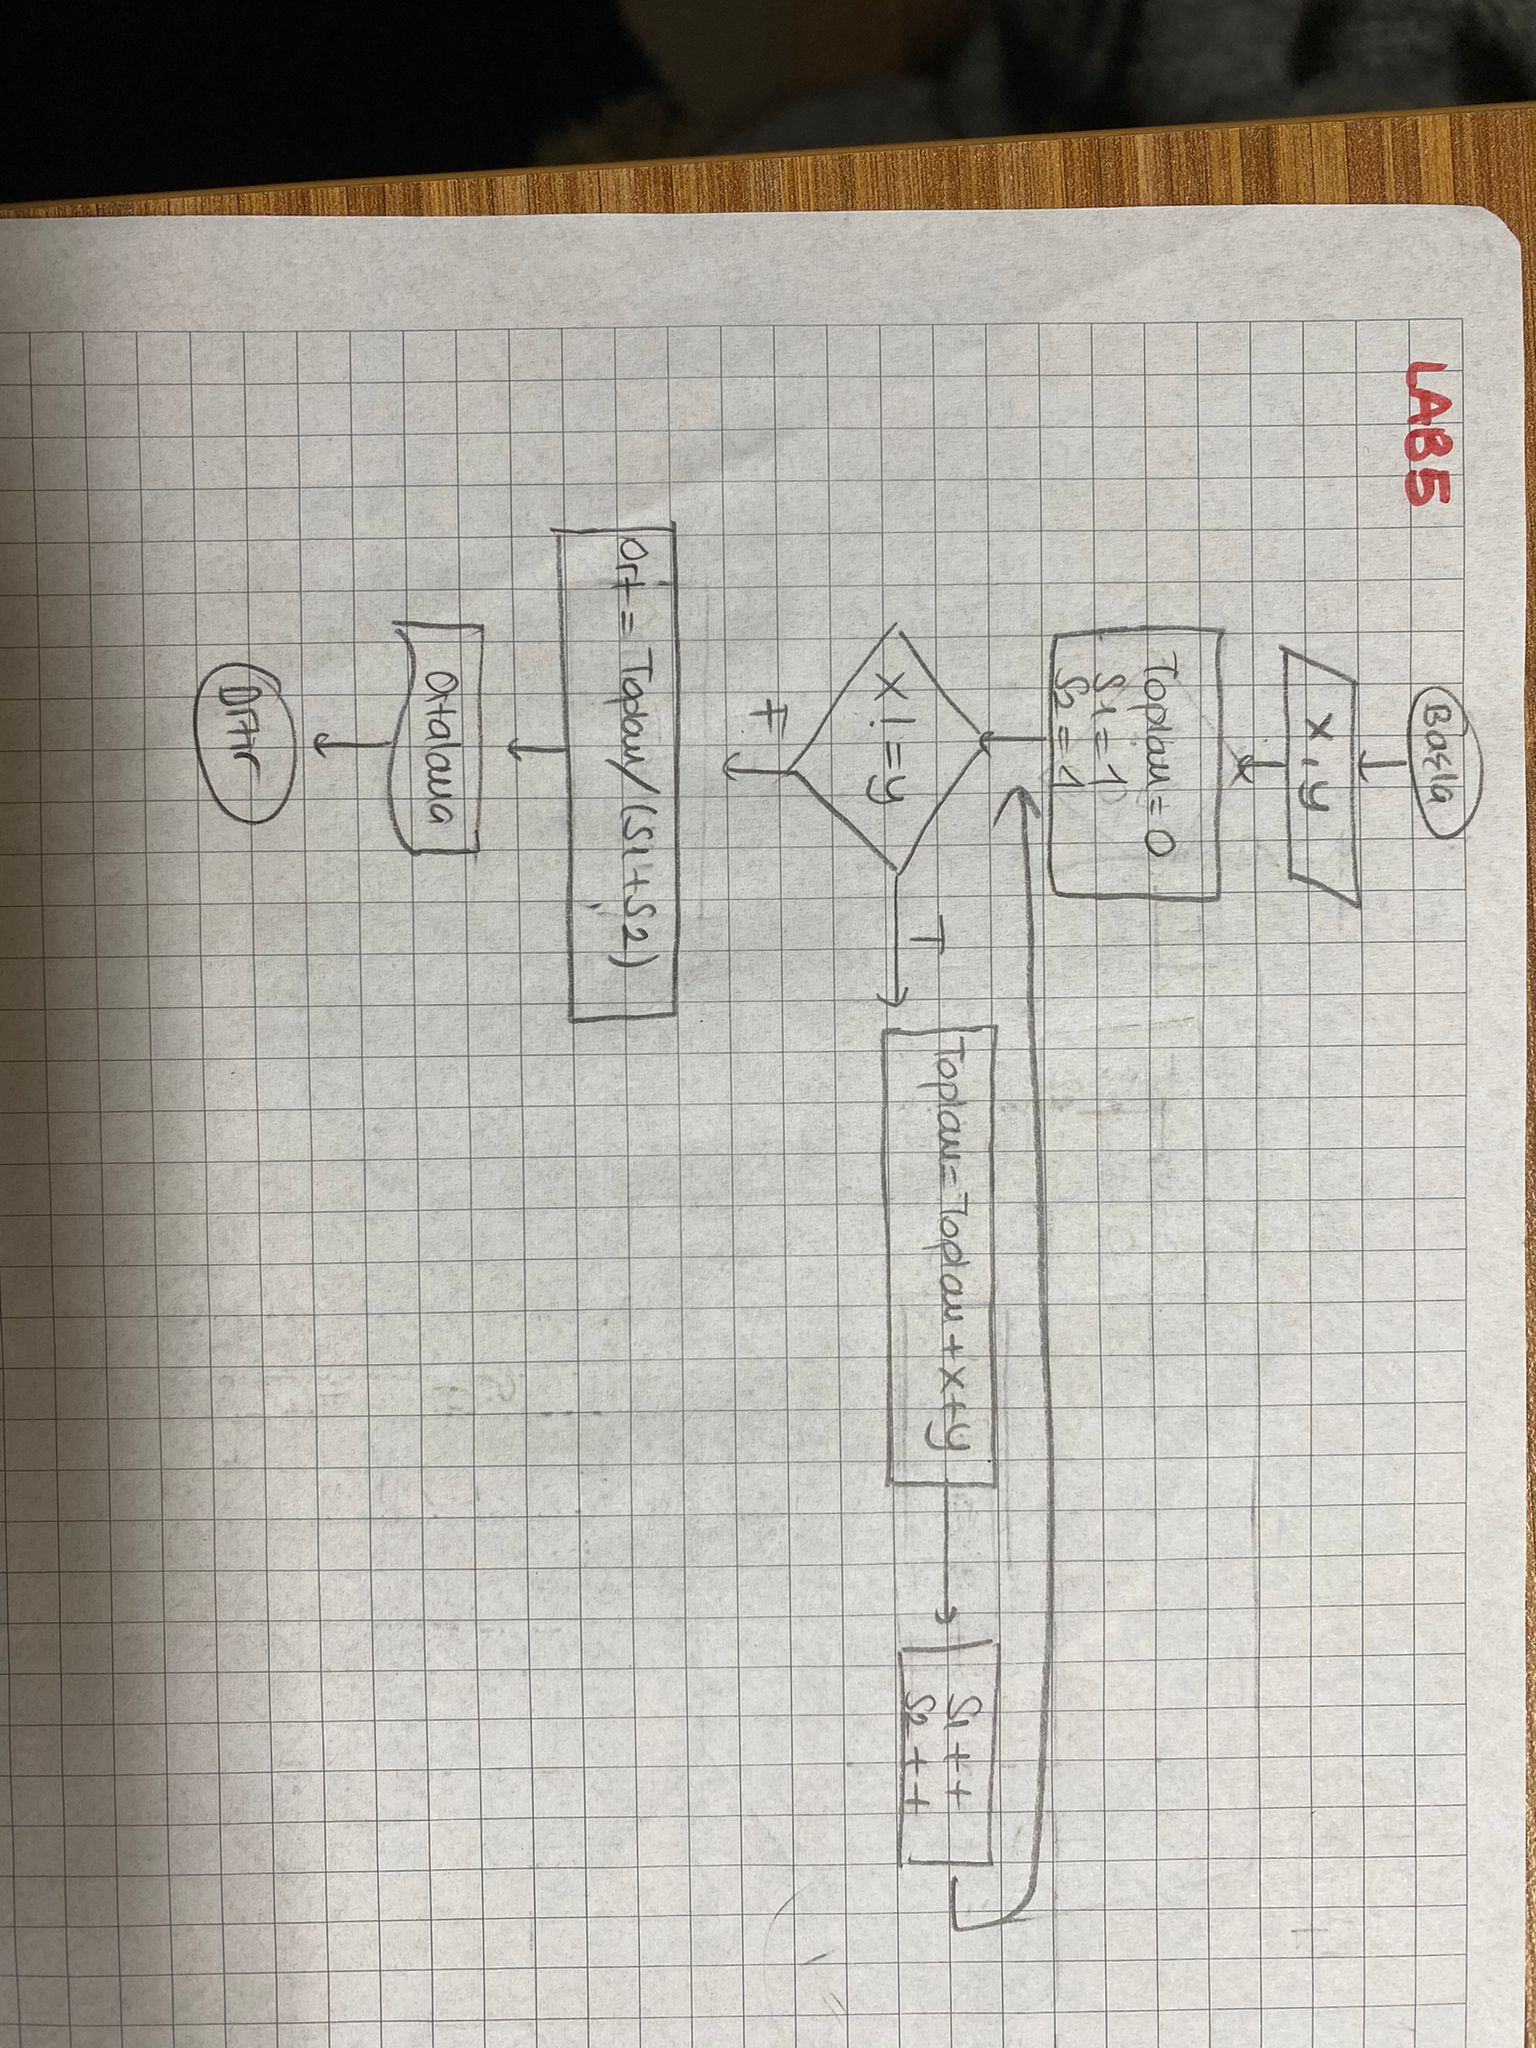 LAB5
Başla
x,y
Toplam = 0
S1 = 1
S2 = 1
x != y
T
Toplam = Toplam + x + y
S1 ++
S2 ++
F
Ort = Toplam / (S1 + S2)
Ortalama